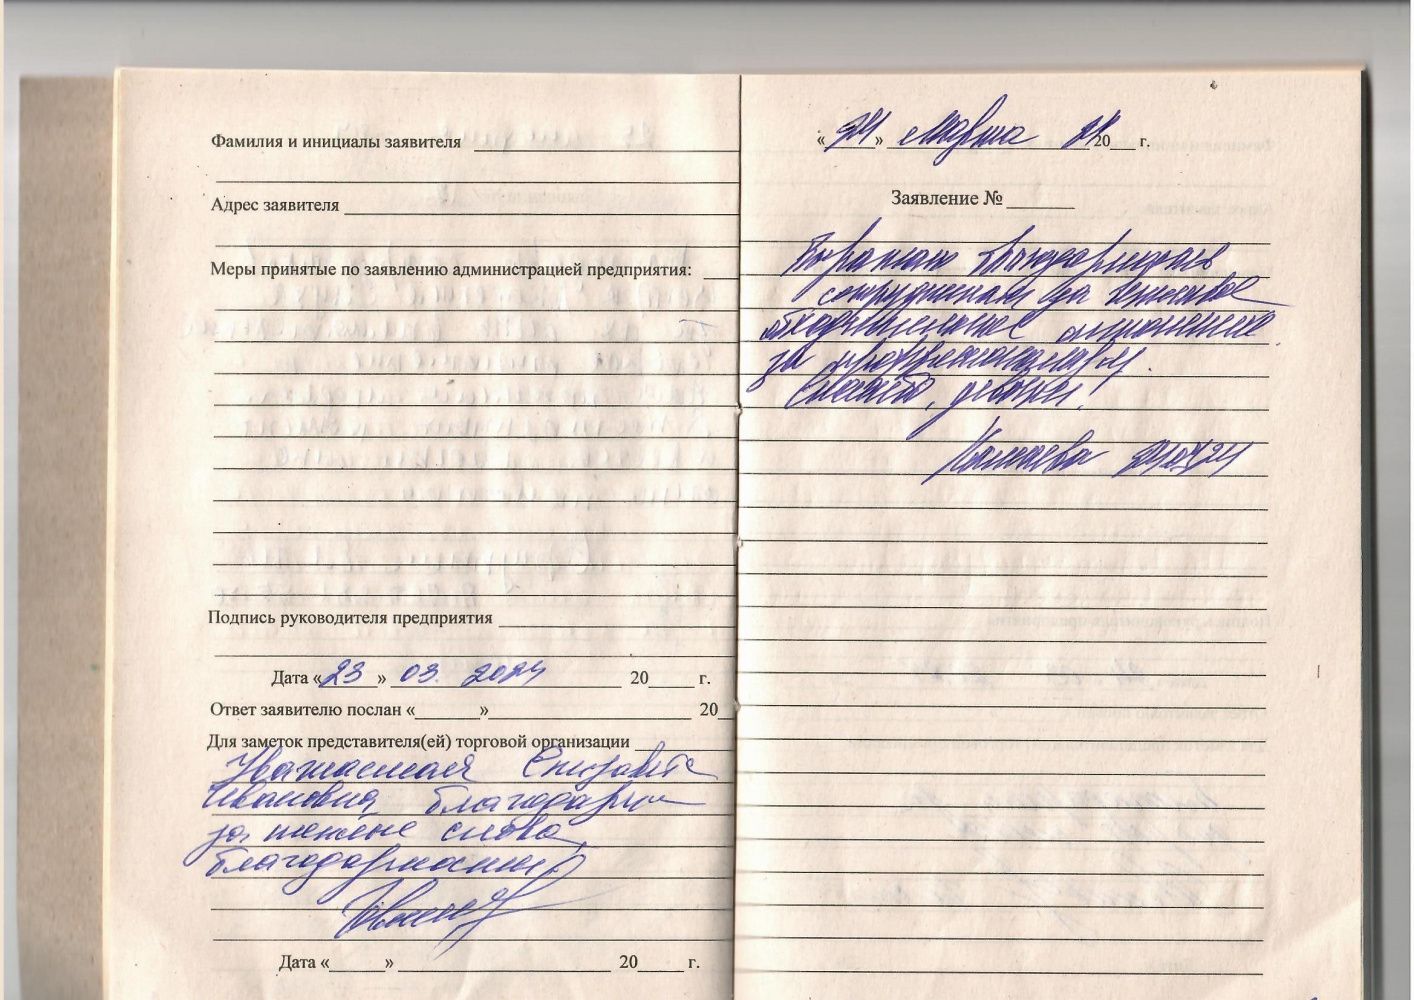 Фамилия и инициалы заявителя
Адрес заявителя
Меры принятые по заявлению администрацией предприятия:
Подпись руководителя предприятия
Дата «23» 03. 2024 20 г.
Ответ заявителю послан « » 20
Для заметок представителя(ей) торговой организации
Уважаемая Елизавета
Ивановна, благодарим
за теплые слова
благодарности
Дата « » 20 г.
«24» Марта 24 20 г.
Заявление №
Выражаю благодарность
сотрудникам за
отношение
за профессионализм.
Спасибо, девочки!